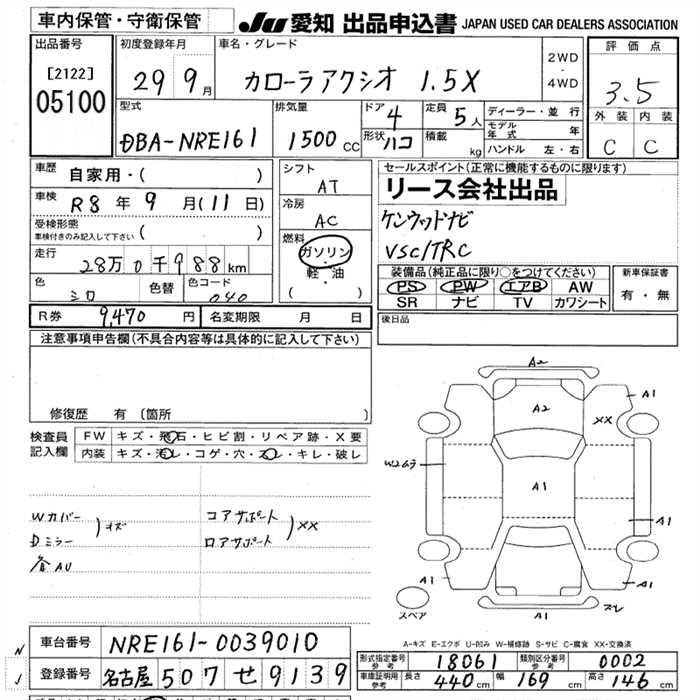 車内保管・守衛保管
JU 愛知 出品申込書 JAPAN USED CAR DEALERS ASSOCIATION
出品番号
[2122]
05100
初度登録年月
29 9月
車名・グレード
カローラアクシオ 1.5X
2WD
・
4WD
評価点
3.5
外装 内装
C C
型式
DBA-NRE161
排気量
1500cc
ドア 4
形状 ハコ
定員 5人
積載 kg
ディーラー・並行
モデル年式 年
ハンドル 左・右
車歴 自家用・( )
車検 R8年9月(11日)
受検形態
車検付きのみ記入して下さい ( )
走行 28万0千988km
色 シロ
色替
色コード 040
シフト
AT
冷房
AC
燃料
ガソリン
・
軽・油
( )
セールスポイント(正常に機能するものに限ります)
リース会社出品
ケンウッドナビ
VSC/TRC
装備品(純正品に限り○をつけてください)
PS PW エアB AW
SR ナビ TV カワシート
新車保証書
有・無
R券 9,470円
名変期限 月 日
後日品
注意事項申告欄(不具合内容等は具体的に記入して下さい)
修復歴 有(箇所
検査員記入欄
FW キズ・飛石・ヒビ割・リペア跡・X要
内装 キズ・汚レ・コゲ・穴・スレ・キレ・破レ
Wカバー
Dミラー
)キズ
各AU
コアサポート
ロアサポート
)XX
A2
A1
A2
XX
W26ラ
A1
A1
A1
A1
A1
A1
スレ
スペア
A-キズ E-エクボ U-凹み W-補修跡 S-サビ C-腐食 XX-交換済
N
J
車台番号 NRE161-0039010
登録番号 名古屋 507 せ 9139
形式指定番号 参考 18061
類別区分番号 参考 0002
車庫証明用 参考 長さ 440cm 幅 169cm 高さ 146cm